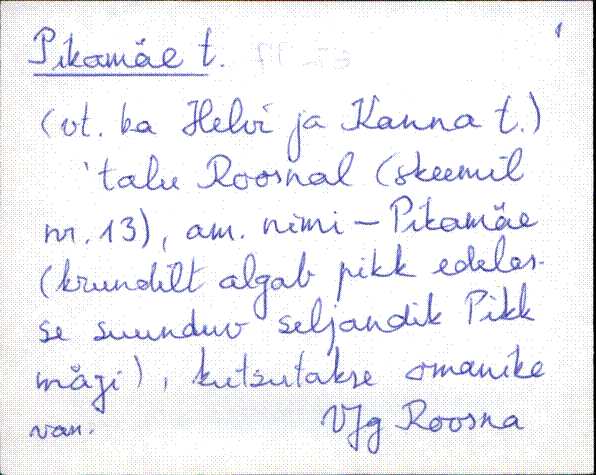 Pikamäe t.
(vt. ka Helvi ja Kanna t.)
'talu Roosnal (skeemil
nr. 13), am. nimi – Pikamäe
(krundilt algab pikk edelas-
se suunduv seljandik Pikk
mägi), kutsutakse omanike
van. VJg Roosna